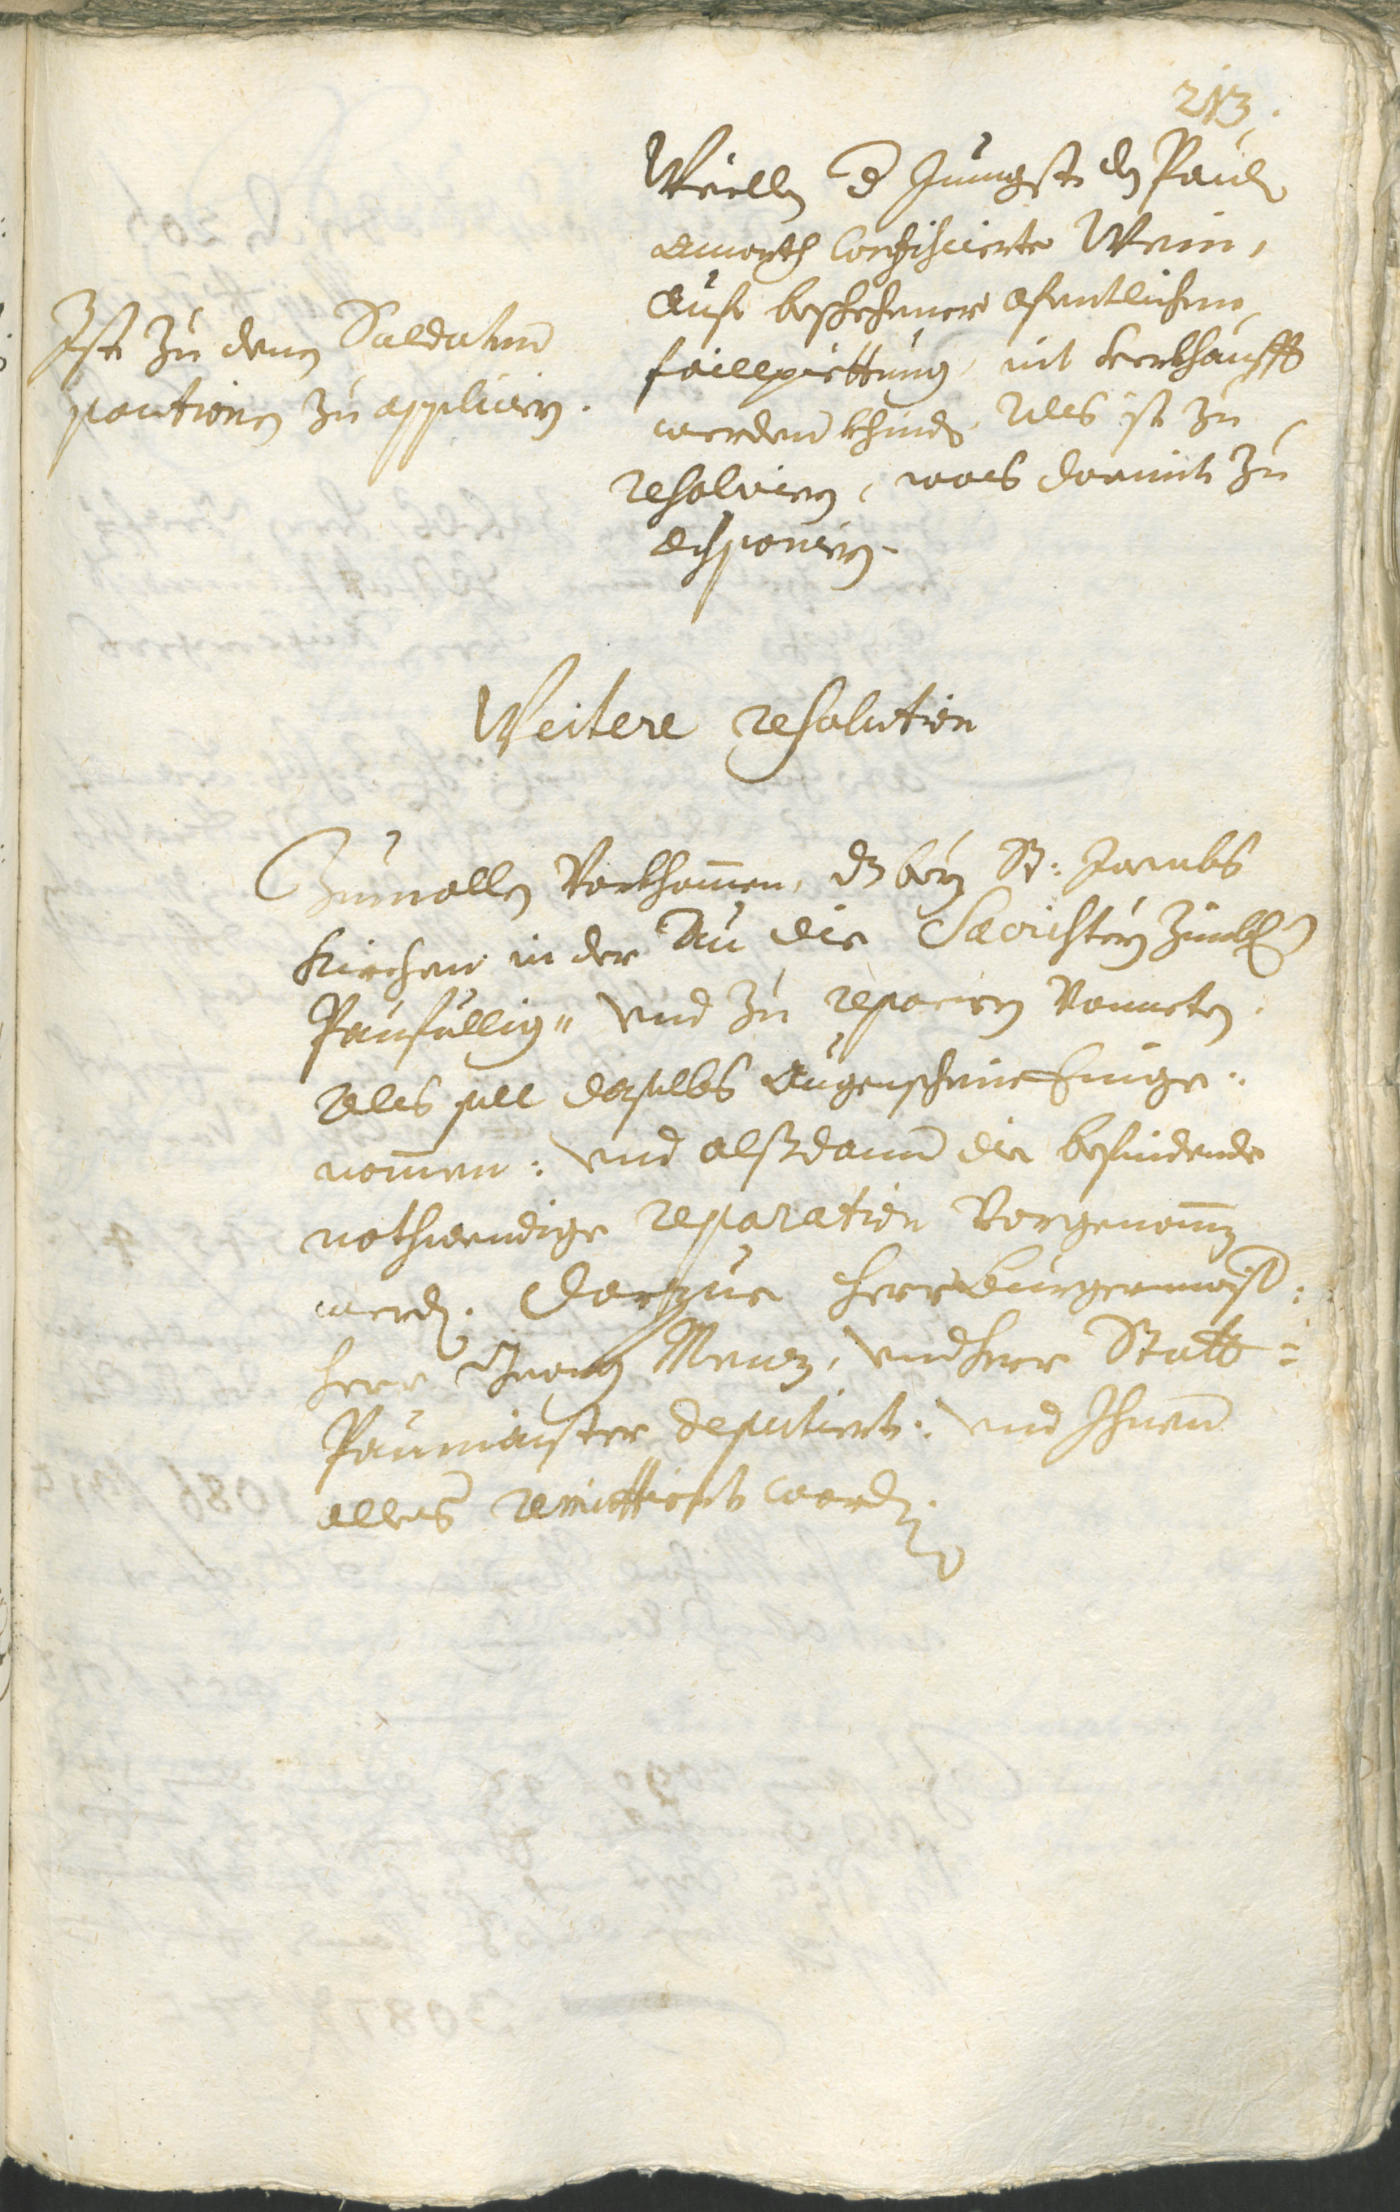 213.
Weillen d Jungst dem Paul
Amorth Confiscierte Wein,
Auf beschehener ofentlichen
faillpiettung, nit verkhaufft
werden khinde, Als ist zu
resolviern, was darmit zu
disponiern.
Ist zu denen Saldathen
portionen zu appliciern.
Weitere resolution
Zumallen Vorkhomen, dz bey St: Jacobs
Kirchen in der Au die Sacristey Zimbl:
Paufellig, und zu repariern Vonneten.
Als soll desselbs Augenschein Einge:
nomen: und alßdann die befindende
nothwendige reparation Vorgenomen
werden. Darzue Herr Burgermaist:
Herr Georg Menz, und Herr Statt=
Paumaister deputiert: und Ihnen
alles remittiert worden.